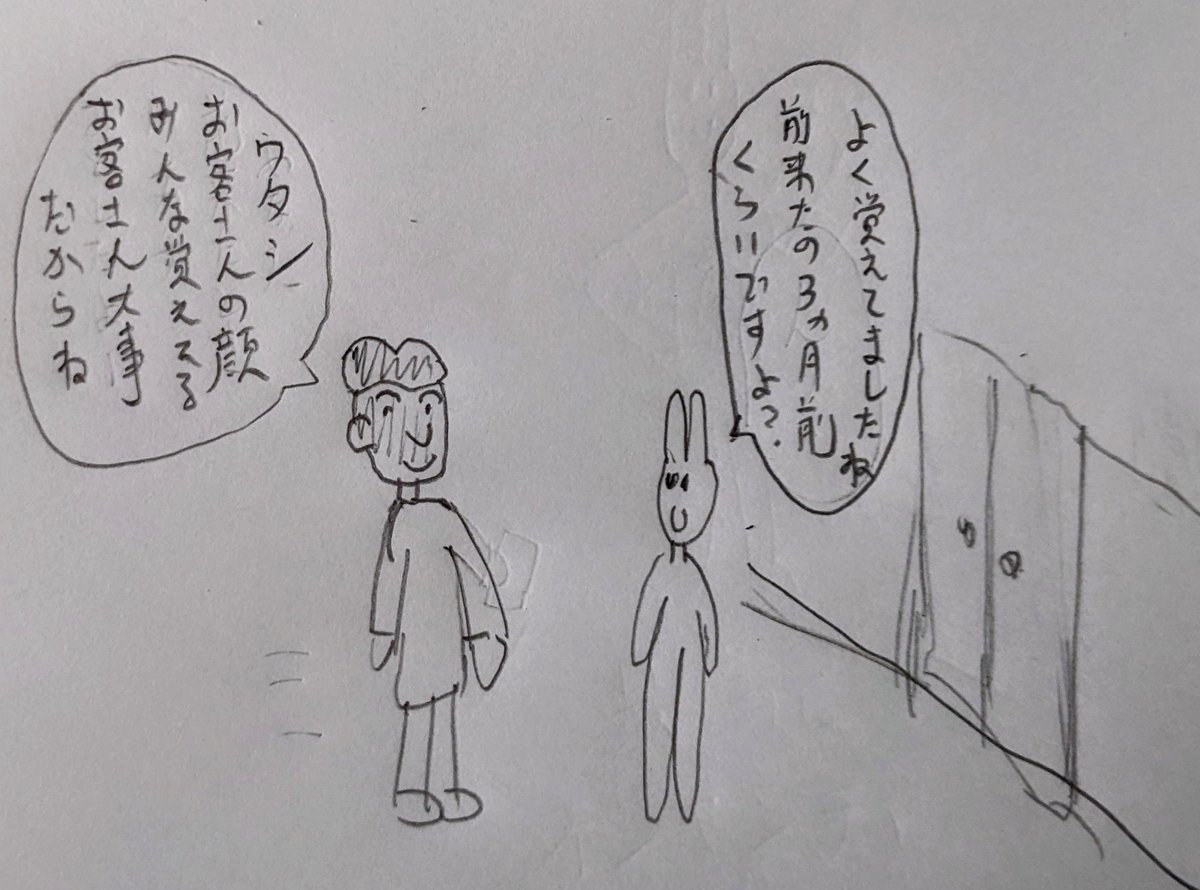 よく覚えてましたね
前来たの3ヵ月前
くらいですよ?
ワタシ
お客さんの顔
みんな覚えてる
お客さん大事
だからね